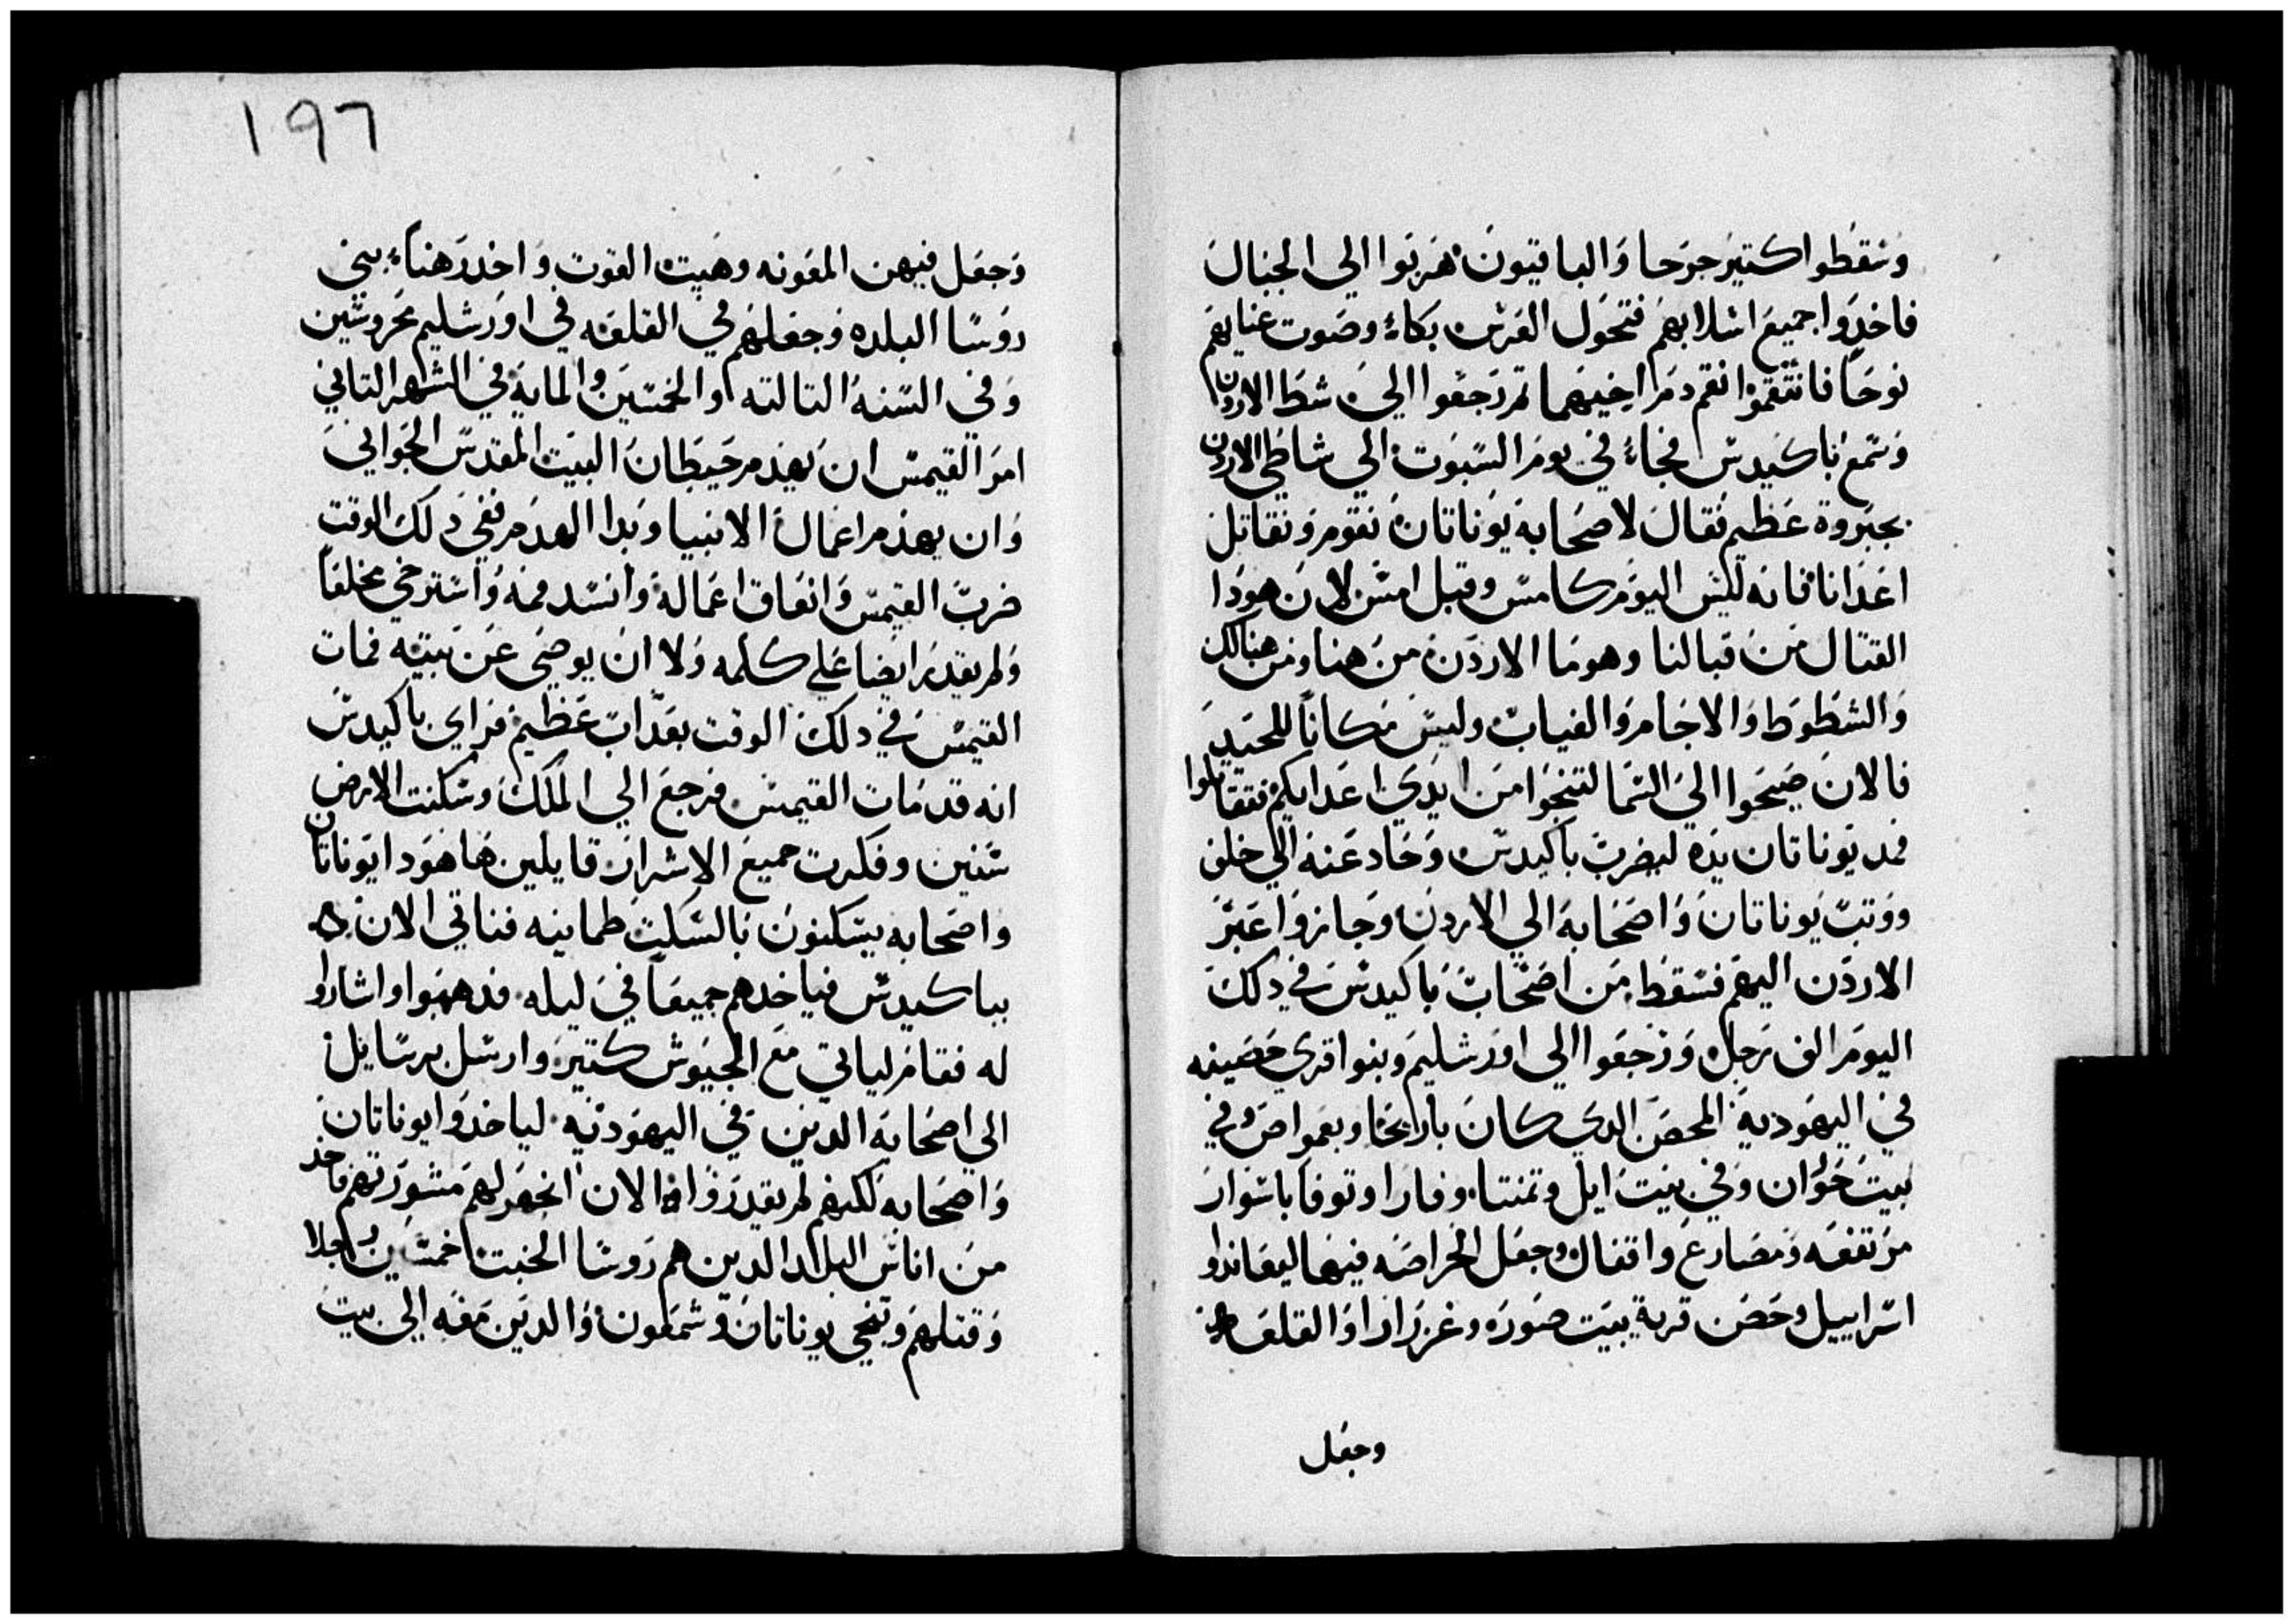 وسقطوا كتير جرحا والباقيون هربوا الي الجبال
فاخدوا جميع اسلابهم فتحول العرس بكاء وصوت غنايهم
نوحا فانتقموا نقم دم اخيهما تم رجعوا الي شط الاردن
وسمع باكيدس فجاء في يوم السبوت الي شاطي الاردن
بجبروة عظيم فقال لاصحابه يوناتان نقوم ونقاتل
اعدانا فانه ليس اليوم كامس وقبل امس لان هودا
القتال من قبالنا وهوما الاردن من هنا ومن هنالك
والشطوط والاجام والغياب وليس مكانا للحيد
فالان صيحوا الي السما لتنجوا من ايدي اعدايكم فتقاتلوا
فمد يوناتان يده ليضرب باكيدس وحاد عنه الي خلف
ووتب يوناتان واصحابه الي الاردن وجازوا عبر
الاردن اليهم فسقط من اصحاب باكيدس في دلك
اليوم الف رجل ورجعوا الي اورشليم وبنوا قري حصينه
في اليهودية المحصن الدي كان باريحا وبعمواص وفي
بيت حوران وفي بيت ايل وتمنتا وفارا وتوفا باسوار
مرتفعه ومصارع واقفال وجعل الحراصه فيها ليعاندوا
اسراييل وحصن قرية بيت صوره وغزرارا والقلعه
وجعل
١٩٦
وجعل فيهن المعونه وهيت القوت واخد رهناء بني
روسا البلده وجعلهم في القلعه في اورشليم محروسين
وفي السنه التالته والخمسين والمايه في الشهر التاني
امر القيمس ان يهدم حيطان البيت المقدس الجواني
وان يهدم اعمال الانبيا وبدا الهدم ففي دلك الوقت
ضرب القيمس وانعاق اعماله وانسد فمه واسترخي مخلعا
ولم يقدر ايضا علي كلمه ولا ان يوصي عن بيته فمات
القيمس في دلك الوقت بعداب عظيم فراي باكيدس
انه قد مات القيمس فرجع الي الملك وسكنت الارض
سنين وفكرت جميع الاشرار قايلين ها هودا يوناتان
واصحابه يسكنون بالسكت طمانينه فناتي الان
بباكيدس فياخدهم جميعا في ليله فدهبوا واشاروا
له فقام لياتي مع الجيوش كتير وارسل برسايل
الي اصحابه الدين في اليهوديه لياخدوا يوناتان
واصحابه لكنهم لم يقدروا الان انجهر لهم مشورتهم فاخد
من اناس البلد الدين هم روسا الخبت خمسين رجلا
وقتلهم وتنحي يوناتان وشمعون والدين معه الي بيت